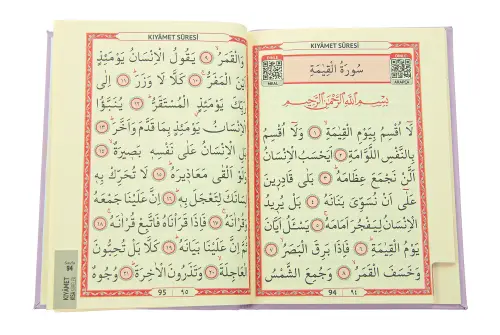 KIYÂMET SÛRESİ
سُورَةُ الْقِيٰمَةِ
MEAL
ARAPÇA
بِسْمِ اللّٰهِ الرَّحْمٰنِ الرَّحِيمِ
لَٓا اُقْسِمُ بِيَوْمِ الْقِيٰمَةِۙ ﴿١﴾ وَلَٓا اُقْسِمُ
بِالنَّفْسِ اللَّوَّامَةِ ﴿٢﴾ اَيَحْسَبُ الْاِنْسَانُ
اَلَّنْ نَجْمَعَ عِظَامَهُ ﴿٣﴾ بَلٰى قَادِرِينَ
عَلٰٓى اَنْ نُسَوِّيَ بَنَانَهُ ﴿٤﴾ بَلْ يُرِيدُ
الْاِنْسَانُ لِيَفْجُرَ اَمَامَهُ ﴿٥﴾ يَسْـَٔلُ اَيَّانَ
يَوْمُ الْقِيٰمَةِ ﴿٦﴾ فَاِذَا بَرِقَ الْبَصَرُ ﴿٧﴾
وَخَسَفَ الْقَمَرُ ﴿٨﴾ وَجُمِعَ الشَّمْسُ
94 ٩٤
KIYÂMET SÛRESİ
وَالْقَمَرُ ﴿٩﴾ يَقُولُ الْاِنْسَانُ يَوْمَئِذٍ
اَيْنَ الْمَفَرُّ ﴿١٠﴾ كَلَّا لَا وَزَرَ ﴿١١﴾ اِلٰى
رَبِّكَ يَوْمَئِذٍ الْمُسْتَقَرُّ ﴿١٢﴾ يُنَبَّؤُا
الْاِنْسَانُ يَوْمَئِذٍ بِمَا قَدَّمَ وَاَخَّرَ ﴿١٣﴾
بَلِ الْاِنْسَانُ عَلٰى نَفْسِهِ بَصِيرَةٌ ﴿١٤﴾
وَلَوْ اَلْقٰى مَعَاذِيرَهُ ﴿١٥﴾ لَا تُحَرِّكْ بِهِ
لِسَانَكَ لِتَعْجَلَ بِهِ ﴿١٦﴾ اِنَّ عَلَيْنَا جَمْعَهُ
وَقُرْاٰنَهُ ﴿١٧﴾ فَاِذَا قَرَاْنَاهُ فَاتَّبِعْ قُرْاٰنَهُ ﴿١٨﴾
ثُمَّ اِنَّ عَلَيْنَا بَيَانَهُ ﴿١٩﴾ كَلَّا بَلْ تُحِبُّونَ
الْعَاجِلَةَ ﴿٢٠﴾ وَتَذَرُونَ الْاٰخِرَةَ ﴿٢١﴾ وُجُوهٌ
95 ٩٥
94
KIYÂMET